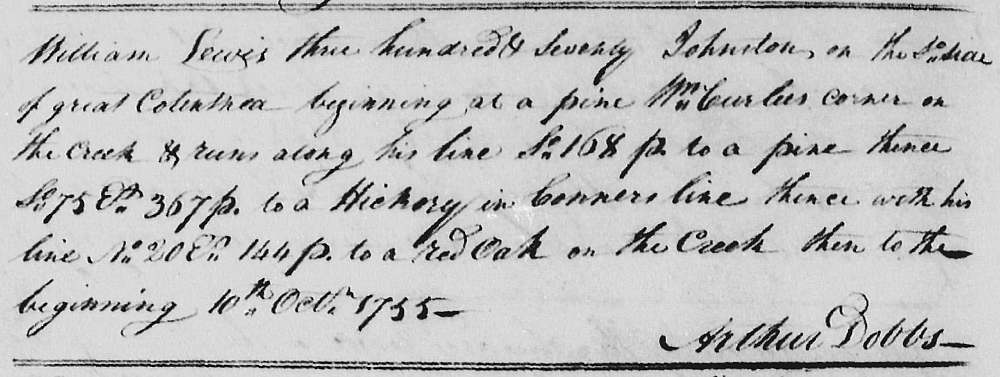 William Lewis three hundred & Seventy Johnston, on the So. side
of great Cotenthea beginning at a pine Wm. Curlees corner on
the Creek & runs along his line So. 168 p. to a pine thence
So. 75 Et. 367 p. to a Hickory in Conners line thence with his
line No. 20 Et. 144 p. to a red Oak on the Creek then to the
beginning 10th. Octr. 1755
Arthur Dobbs